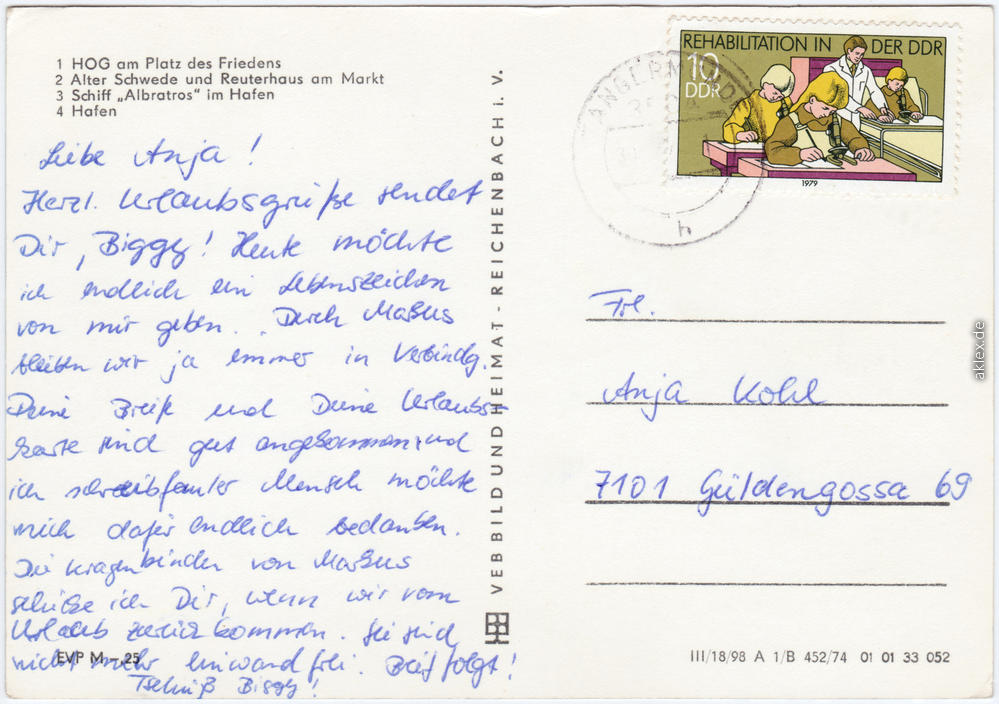 1 HOG am Platz des Friedens
2 Alter Schwede und Reuterhaus am Markt
3 Schiff „Albratros" im Hafen
4 Hafen
Liebe Anja!
Herzl. Urlaubsgrüße sendet
Dir, Biggy! Heute möchte
ich endlich ein Lebenszeichen
von mir geben. Durch Markus
bleiben wir ja immer in Verbindg.
Deine Briefe und Deine Urlaubs-
karte sind gut angekommen und
ich schreibfauler Mensch möchte
mich dafür endlich bedanken.
Die Kragenbinder von Markus
schicke ich Dir, wenn wir vom
Urlaub zurückkommen. Sie sind
nicht mehr einwandfrei. Brief folgt!
Tschüß Biggy!
EVP M –,25
VEB BILD UND HEIMAT · REICHENBACH i. V.
REHABILITATION IN DER DDR
10
DDR
1979
ANGERM
h
Frl.
Anja Kohl
7101 Güldengossa 69
III/18/98 A 1/B 452/74 01 01 33 052
aklex.de